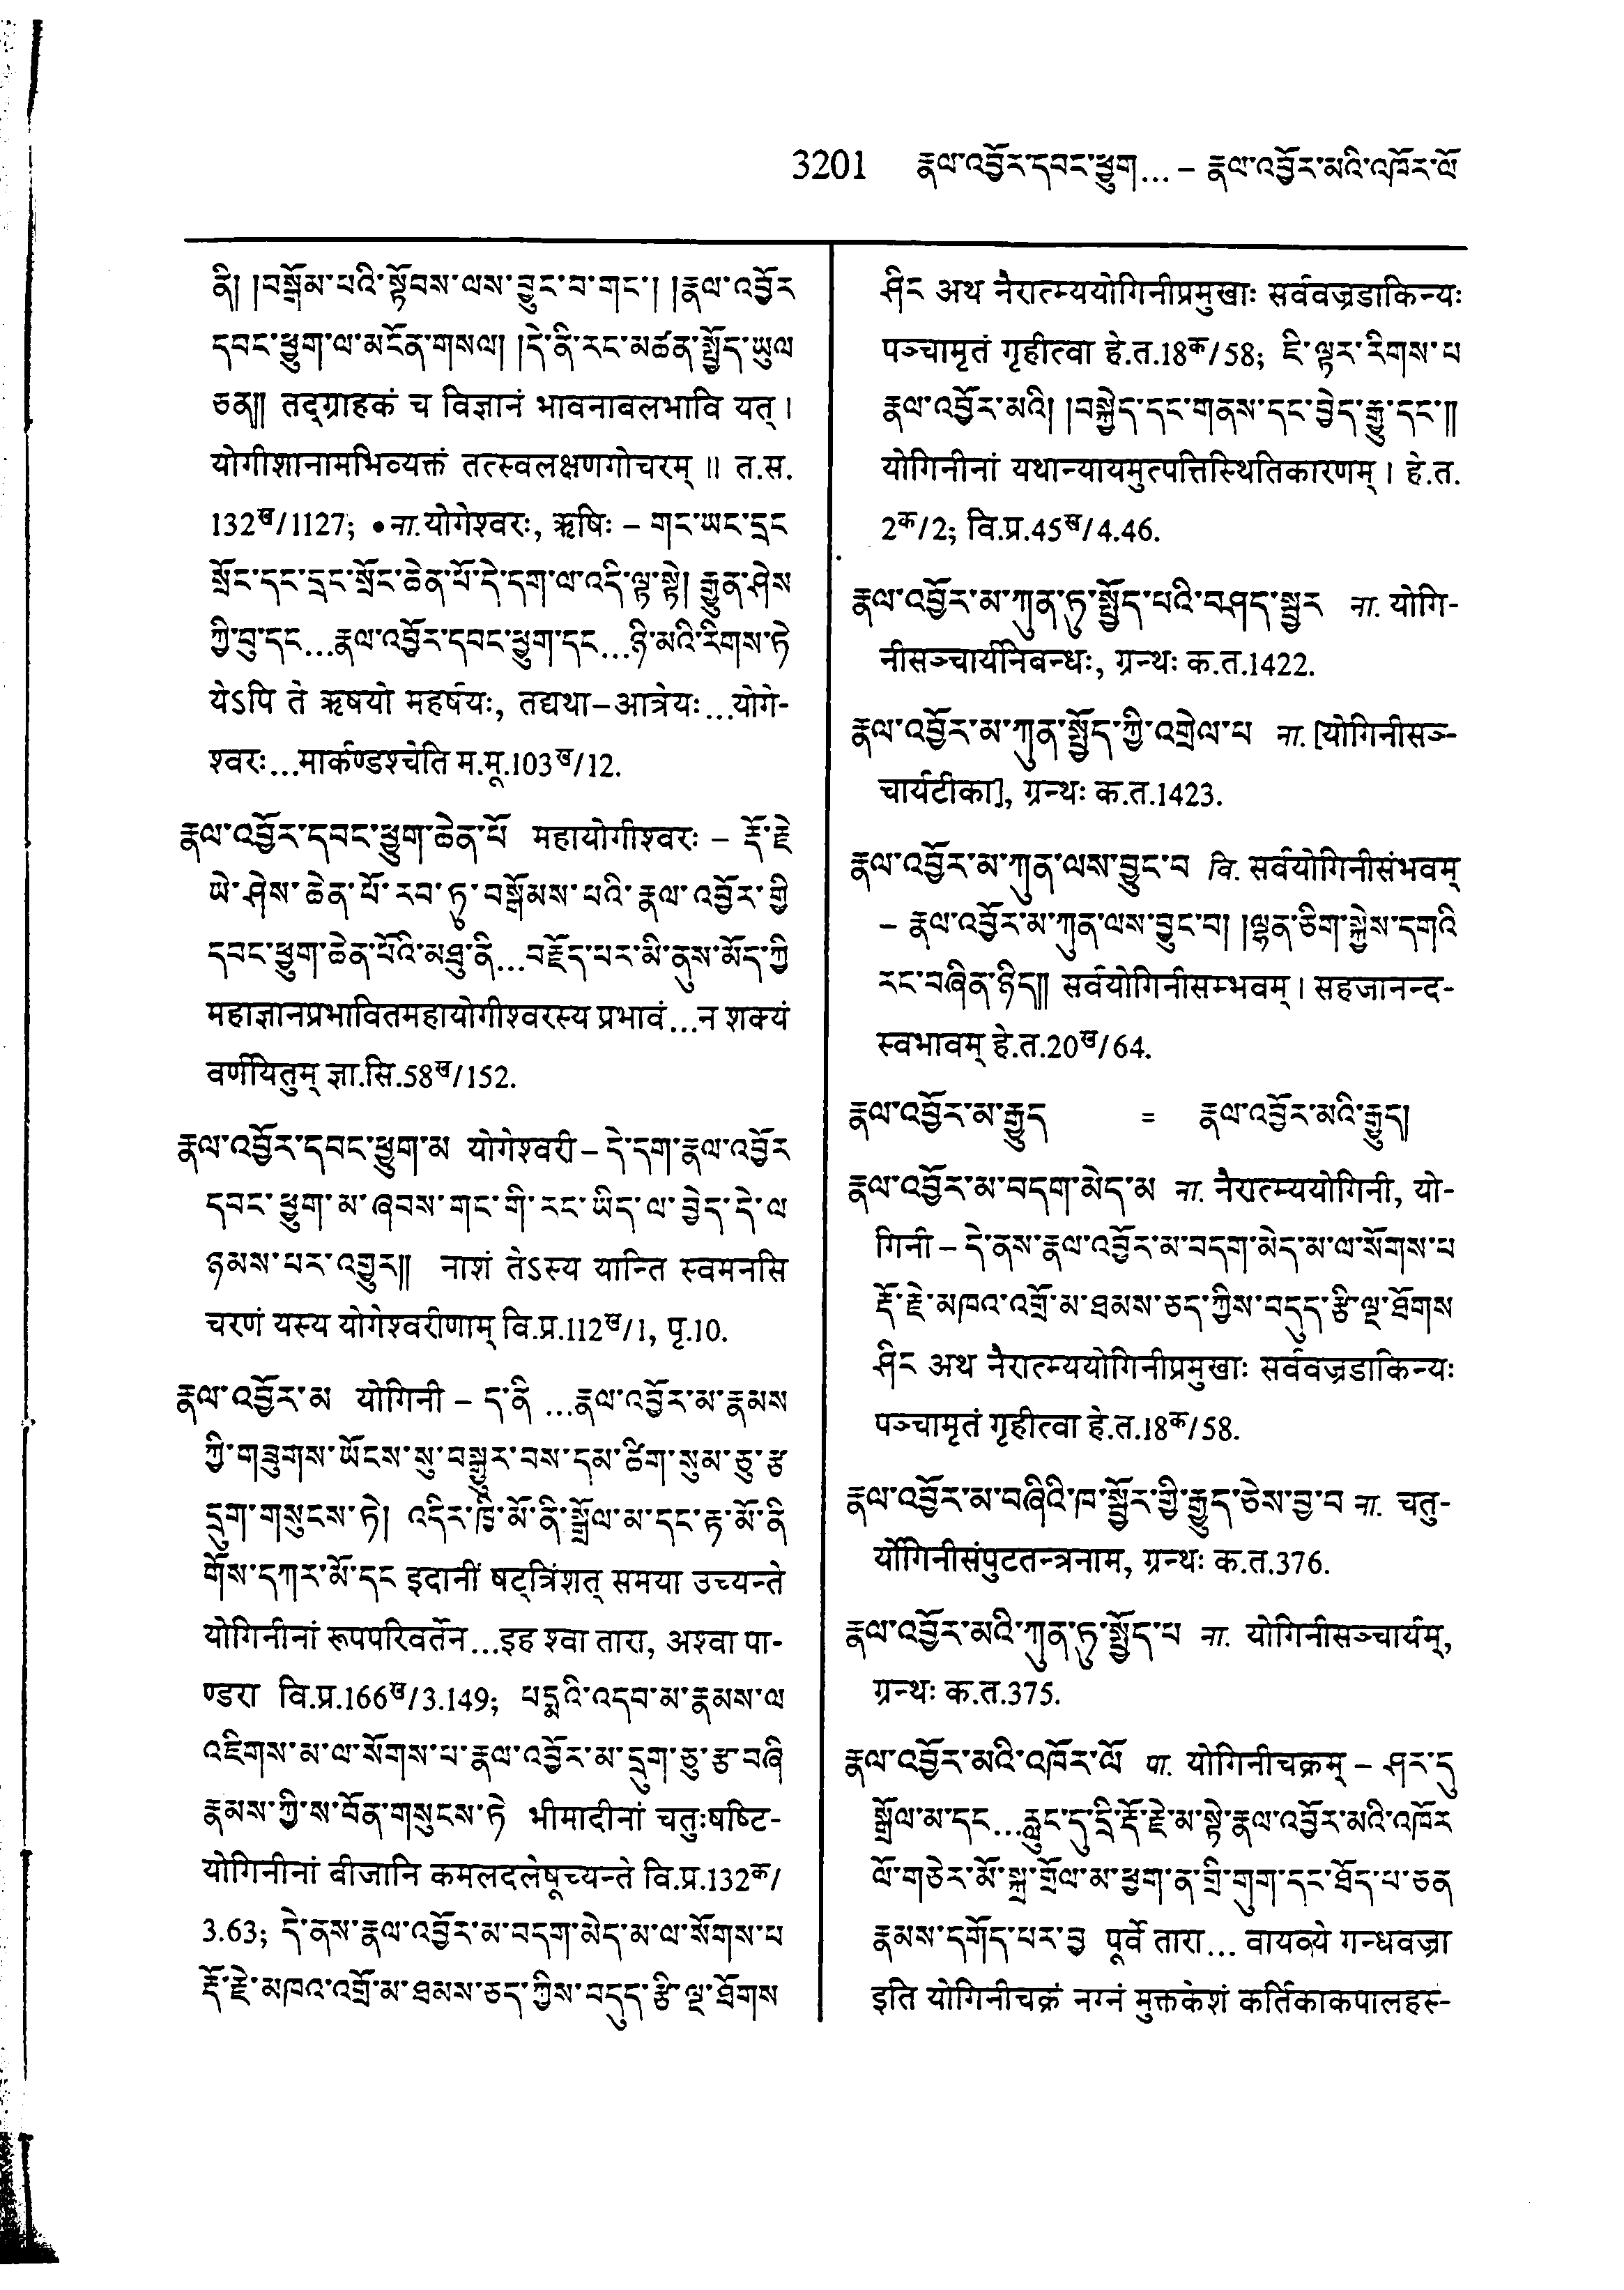 3201 རྣལ་འབྱོར་དབང་ཕྱུག... – རྣལ་འབྱོར་མའི་འཁོར་ལོ
ནི། །བསྒོམ་པའི་སྟོབས་ལས་བྱུང་བ་གང་། །རྣལ་འབྱོར
དབང་ཕྱུག་ལ་མངོན་གསལ། །དེ་ནི་རང་མཚན་སྤྱོད་ཡུལ
ཅན།། तद्ग्राहकं च विज्ञानं भावनाबलभावि यत् ।
योगीशानामभिव्यक्तं तत्स्वलक्षणगोचरम् ॥ त.स.
132ख/1127; • ना.योगेश्वरः, ऋषिः – གང་ཡང་དྲང
སྲོང་དང་དྲང་སྲོང་ཆེན་པོ་དེ་དག་ལ་འདི་ལྟ་སྟེ། རྒྱུན་ཤེས
ཀྱི་བུ་དང...རྣལ་འབྱོར་དབང་ཕྱུག་དང...ཉི་མའི་རིགས་ཏེ
येऽपि ते ऋषयो महर्षयः, तद्यथा–आत्रेयः...योगे-
श्वरः...मार्कण्डश्चेति म.मू.103ख/12.
རྣལ་འབྱོར་དབང་ཕྱུག་ཆེན་པོ महायोगीश्वरः – རྡོ་རྗེ
ཡེ་ཤེས་ཆེན་པོ་རབ་ཏུ་བསྒོམས་པའི་རྣལ་འབྱོར་གྱི
དབང་ཕྱུག་ཆེན་པོའི་མཐུ་ནི...བརྗོད་པར་མི་ནུས་མོད་ཀྱི
महाज्ञानप्रभावितमहायोगीश्वरस्य प्रभावं...न शक्यं
वर्णयितुम् ज्ञा.सि.58ख/152.
རྣལ་འབྱོར་དབང་ཕྱུག་མ योगेश्वरी – དེ་དག་རྣལ་འབྱོར
དབང་ཕྱུག་མ་ཞབས་གང་གི་རང་ཡིད་ལ་བྱེད་དེ་ལ
ཉམས་པར་འགྱུར།། नाशं तेऽस्य यान्ति स्वमनसि
चरणं यस्य योगेश्वरीणाम् वि.प्र.112ख/1, पृ.10.
རྣལ་འབྱོར་མ योगिनी – ད་ནི ...རྣལ་འབྱོར་མ་རྣམས
ཀྱི་གཟུགས་ཡོངས་སུ་བསྒྱུར་བས་དམ་ཚིག་སུམ་ཅུ་རྩ
དྲུག་གསུངས་ཏེ། འདིར་ཁྱི་མོ་ནི་སྒྲོལ་མ་དང་རྟ་མོ་ནི
གོས་དཀར་མོ་དང इदानीं षट्त्रिंशत् समया उच्यन्ते
योगिनीनां रूपपरिवर्तेन...इह श्वा तारा, अश्वा पा-
ण्डरा वि.प्र.166ख/3.149; པདྨའི་འདབ་མ་རྣམས་ལ
འཇིགས་མ་ལ་སོགས་པ་རྣལ་འབྱོར་མ་དྲུག་ཅུ་རྩ་བཞི
རྣམས་ཀྱི་ས་བོན་གསུངས་ཏེ भीमादीनां चतुःषष्टि-
योगिनीनां बीजानि कमलदलेषूच्यन्ते वि.प्र.132क/
3.63; དེ་ནས་རྣལ་འབྱོར་མ་བདག་མེད་མ་ལ་སོགས་པ
རྡོ་རྗེ་མཁའ་འགྲོ་མ་ཐམས་ཅད་ཀྱིས་བདུད་རྩི་ལྔ་ཐོགས
ཤིང अथ नैरात्म्ययोगिनीप्रमुखाः सर्ववज्रडाकिन्यः
पञ्चामृतं गृहीत्वा हे.त.18क/58; ཇི་ལྟར་རིགས་པ
རྣལ་འབྱོར་མའི། །བསྐྱེད་དང་གནས་དང་བྱེད་རྒྱུ་དང་།།
योगिनीनां यथान्यायमुत्पत्तिस्थितिकारणम् । हे.त.
2क/2; वि.प्र.45ख/4.46.
རྣལ་འབྱོར་མ་ཀུན་ཏུ་སྤྱོད་པའི་བཤད་སྦྱར ना. योगि-
नीसञ्चार्यनिबन्धः, ग्रन्थः क.त.1422.
རྣལ་འབྱོར་མ་ཀུན་སྤྱོད་ཀྱི་འགྲེལ་པ ना. [योगिनीसञ्-
चार्यटीका], ग्रन्थः क.त.1423.
རྣལ་འབྱོར་མ་ཀུན་ལས་བྱུང་བ वि. सर्वयोगिनीसंभवम्
– རྣལ་འབྱོར་མ་ཀུན་ལས་བྱུང་བ། །ལྷན་ཅིག་སྐྱེས་དགའི
རང་བཞིན་ཉིད།། सर्वयोगिनीसम्भवम् । सहजानन्द-
स्वभावम् हे.त.20ख/64.
རྣལ་འབྱོར་མ་རྒྱུད = རྣལ་འབྱོར་མའི་རྒྱུད།
རྣལ་འབྱོར་མ་བདག་མེད་མ ना. नैरात्म्ययोगिनी, यो-
गिनी – དེ་ནས་རྣལ་འབྱོར་མ་བདག་མེད་མ་ལ་སོགས་པ
རྡོ་རྗེ་མཁའ་འགྲོ་མ་ཐམས་ཅད་ཀྱིས་བདུད་རྩི་ལྔ་ཐོགས
ཤིང अथ नैरात्म्ययोगिनीप्रमुखाः सर्ववज्रडाकिन्यः
पञ्चामृतं गृहीत्वा हे.त.18क/58.
རྣལ་འབྱོར་མ་བཞིའི་ཁ་སྦྱོར་གྱི་རྒྱུད་ཅེས་བྱ་བ ना. चतु-
र्योगिनीसंपुटतन्त्रनाम, ग्रन्थः क.त.376.
རྣལ་འབྱོར་མའི་ཀུན་ཏུ་སྤྱོད་པ ना. योगिनीसञ्चार्यम्,
ग्रन्थः क.त.375.
རྣལ་འབྱོར་མའི་འཁོར་ལོ पा. योगिनीचक्रम् – ཤར་དུ
སྒྲོལ་མ་དང...རླུང་དུ་དྲི་རྡོ་རྗེ་མ་སྟེ་རྣལ་འབྱོར་མའི་འཁོར
ལོ་གཅེར་མོ་སྐྲ་གྲོལ་མ་ཕྱག་ན་གྲི་གུག་དང་ཐོད་པ་ཅན
རྣམས་དགོད་པར་བྱ पूर्वे तारा... वायव्ये गन्धवज्रा
इति योगिनीचक्रं नग्नं मुक्तकेशं कर्तिकाकपालहस्-